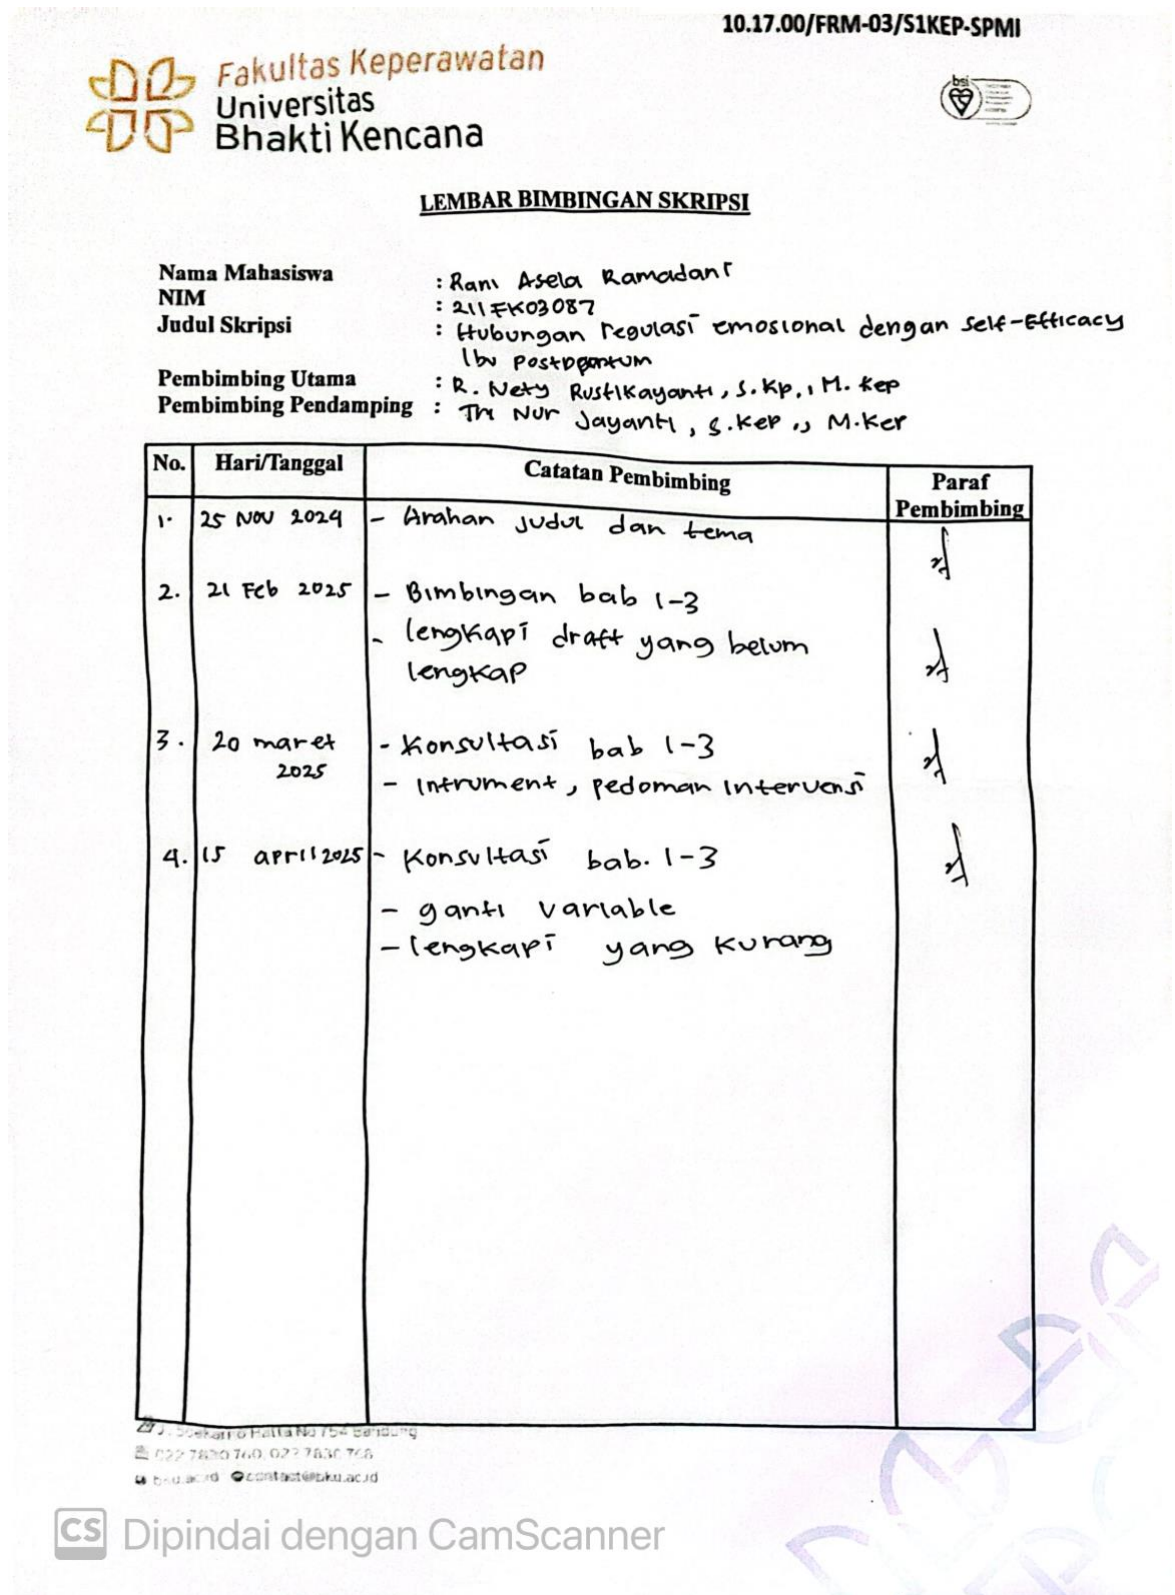 10.17.00/FRM-03/S1KEP-SPMI
Fakultas Keperawatan
Universitas
Bhakti Kencana
bsi
LEMBAR BIMBINGAN SKRIPSI
Nama Mahasiswa : Rani Asela Ramadani
NIM : 211FK03087
Judul Skripsi : Hubungan regulasi emosional dengan Self-Efficacy
Ibu Postpartum
Pembimbing Utama : R. Nety Rustikayanti, S.Kp., M.Kep
Pembimbing Pendamping : Tri Nur Jayanti, S.Kep., M.Kep
No. Hari/Tanggal Catatan Pembimbing Paraf Pembimbing
1. 25 Nov 2024 - Arahan judul dan tema
2. 21 Feb 2025 - Bimbingan bab 1-3
- lengkapi draft yang belum
lengkap
3. 20 maret 2025 - Konsultasi bab 1-3
- Intrument, pedoman Intervensi
4. 15 april 2025 - Konsultasi bab. 1-3
- ganti variable
- lengkapi yang kurang
No 754 Bandung
022 7830 760, 022 7830 768
bku.ac.id contact@bku.ac.id
CS Dipindai dengan CamScanner